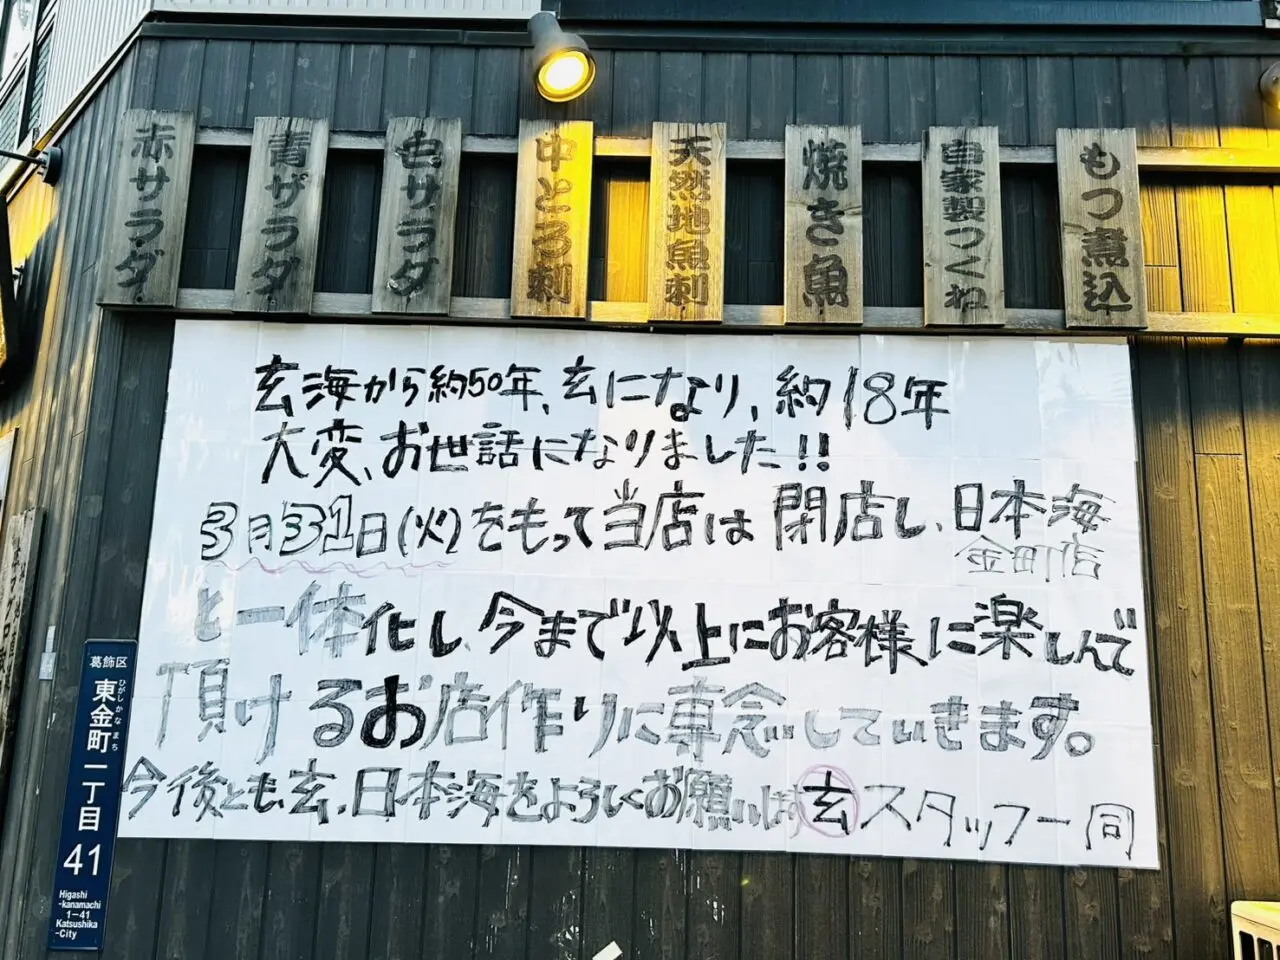 赤サラダ
青ザラダ
白サラダ
中とろ刺
天然地魚刺
焼き魚
自家製つくね
もつ煮込
玄海から約50年、玄になり、約18年
大変、お世話になりました!!
3月31日(火)をもって当店は閉店し、日本海
金町店
と一体化し、今まで以上にお客様に楽しんで
頂けるお店作りに専念していきます。
今後とも、玄、日本海をよろしくお願いします 玄スタッフ一同
葛飾区
東金町一丁目
ひがしかなまち
41
Higashi
-kanamachi
1-41
Katsushika
-City